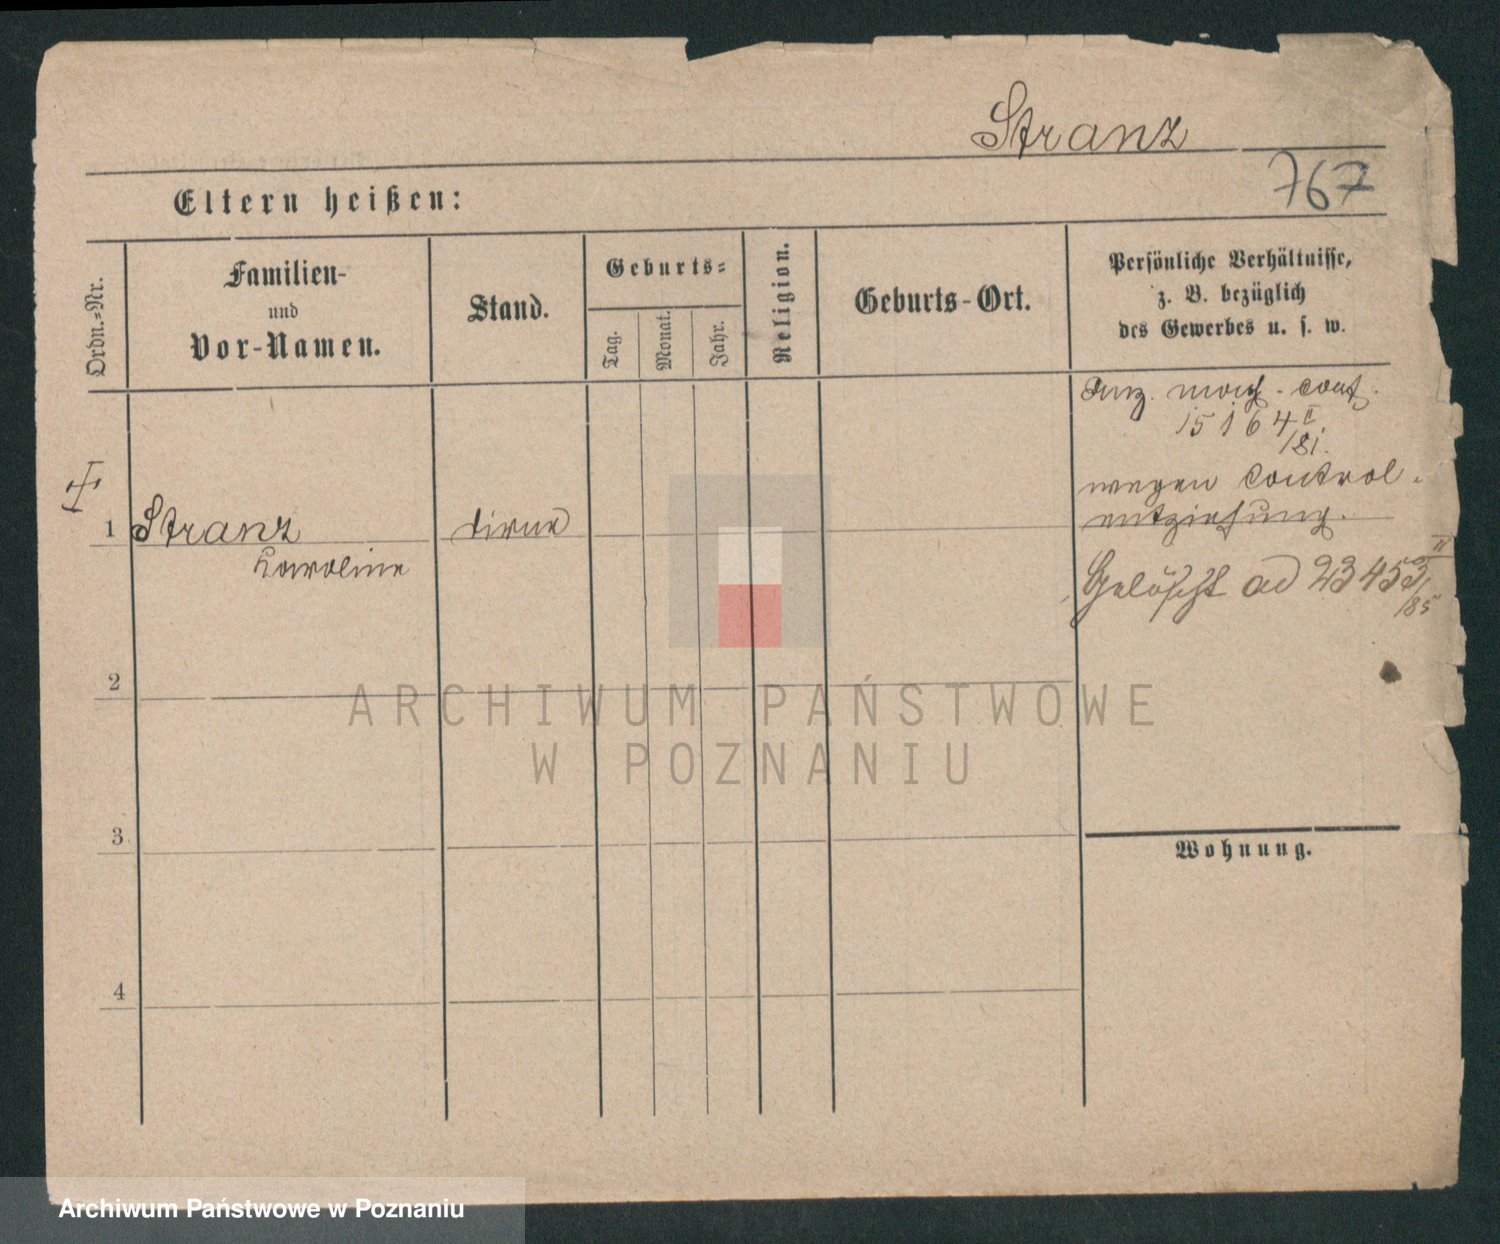 Stranz
767
Eltern heißen:
Ordn.=Nr.
Familien-
und
Vor-Namen.
Stand.
Geburts=
Tag.
Monat.
Jahr.
Religion.
Geburts-Ort.
Persönliche Verhältnisse,
z. B. bezüglich
des Gewerbes u. s. w.
15164 II
/81.
wegen Control-
entziehung.
1 Stranz
Karoline
dirne
Gelöscht ad 23453 II
/85
2
ARCHIWUM PAŃSTWOWE
W POZNANIU
3
Wohnung.
4
Archiwum Państwowe w Poznaniu